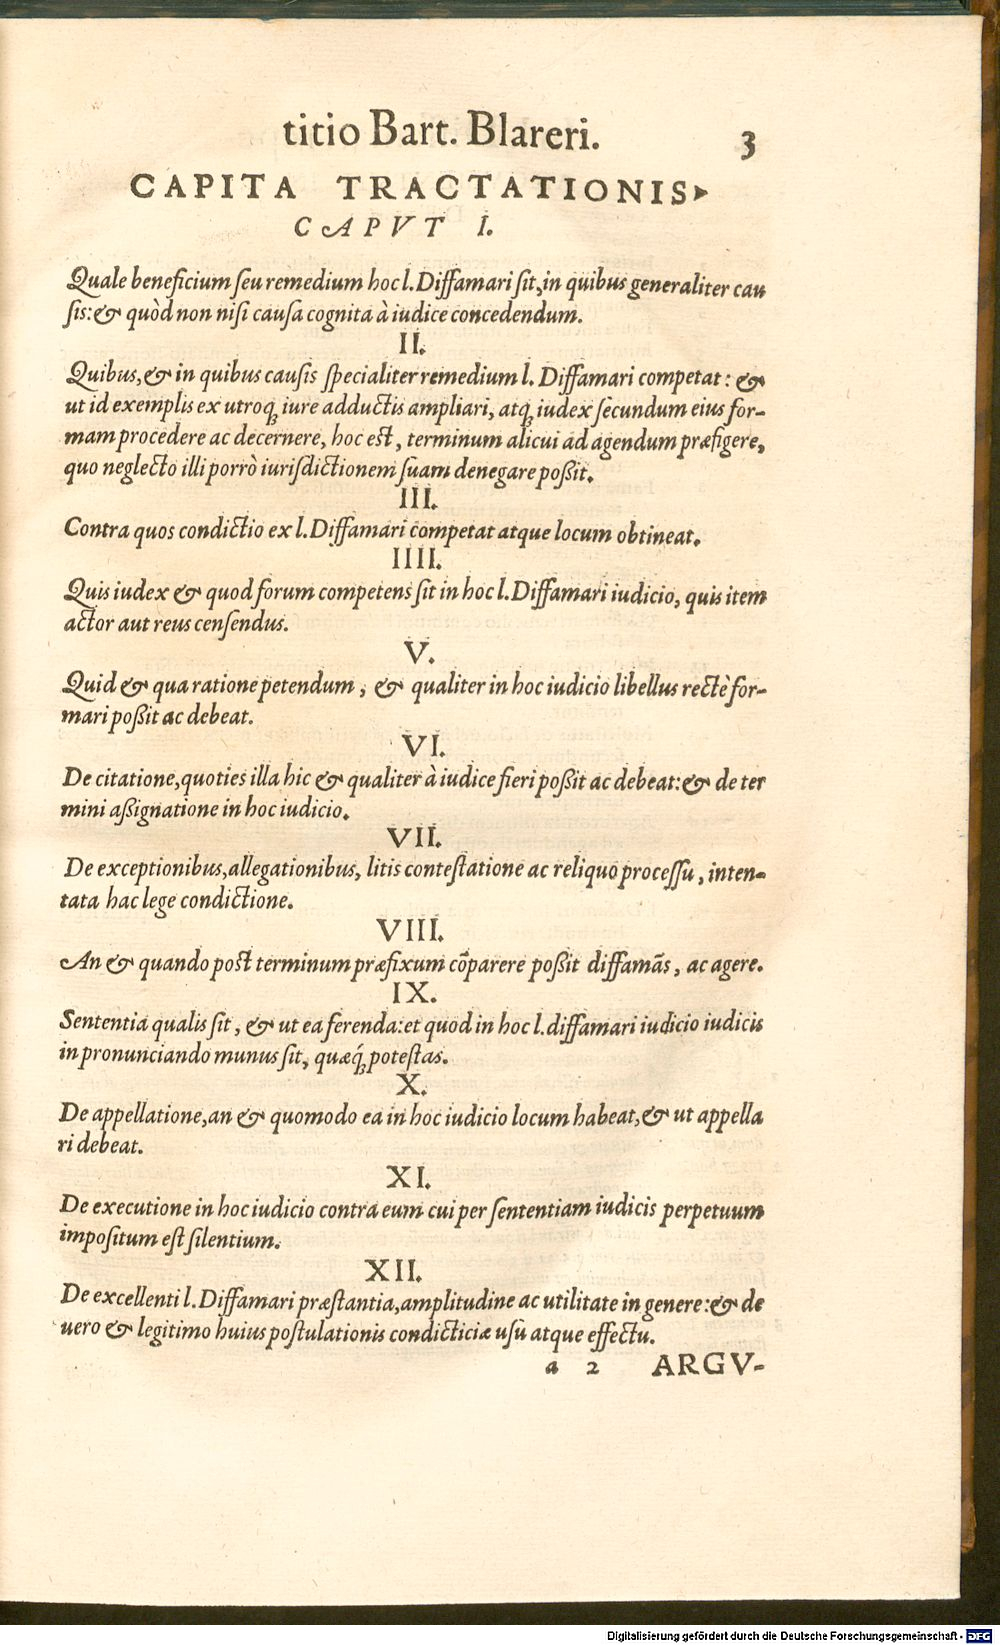 titio Bart. Blareri. 3
CAPITA TRACTATIONIS
CAPVT I.
Quale beneficium ſeu remedium hoc l. Diffamari ſit, in quibus generaliter cau
ſis: & quòd non niſi cauſa cognita à iudice concedendum.
II.
Quibus, & in quibus cauſis ſpecialiter remedium l. Diffamari competat: &
ut id exemplis ex utroq́; iure adductis ampliari, atq́; iudex ſecundum eius for-
mam procedere ac decernere, hoc est, terminum alicui ad agendum præfigere,
quo neglecto illi porrò iuriſdictionem ſuam denegare poßit.
III.
Contra quos condictio ex l. Diffamari competat atque locum obtineat.
IIII.
Quis iudex & quod forum competens ſit in hoc l. Diffamari iudicio, quis item
actor aut reus cenſendus.
V.
Quid & qua ratione petendum, & qualiter in hoc iudicio libellus rectè for-
mari poßit ac debeat.
VI.
De citatione, quoties illa hic & qualiter à iudice fieri poßit ac debeat: & de ter
mini aßignatione in hoc iudicio.
VII.
De exceptionibus, allegationibus, litis conteſtatione ac reliquo proceſſu, inten-
tata hac lege condictione.
VIII.
An & quando post terminum præfixum cõparere poßit diffamãs, ac agere.
IX.
Sententia qualis ſit, & ut ea ferenda: et quod in hoc l. diffamari iudicio iudicis
in pronunciando munus ſit, quæq́; poteſtas.
X.
De appellatione, an & quomodo ea in hoc iudicio locum habeat, & ut appella
ri debeat.
XI.
De executione in hoc iudicio contra eum cui per ſententiam iudicis perpetuum
impoſitum eſt ſilentium.
XII.
De excellenti l. Diffamari præſtantia, amplitudine ac utilitate in genere: & de
uero & legitimo huius poſtulationis condicticiæ uſu atque effectu.
a 2 ARGV-
Digitalisierung gefördert durch die Deutsche Forschungsgemeinschaft - DFG